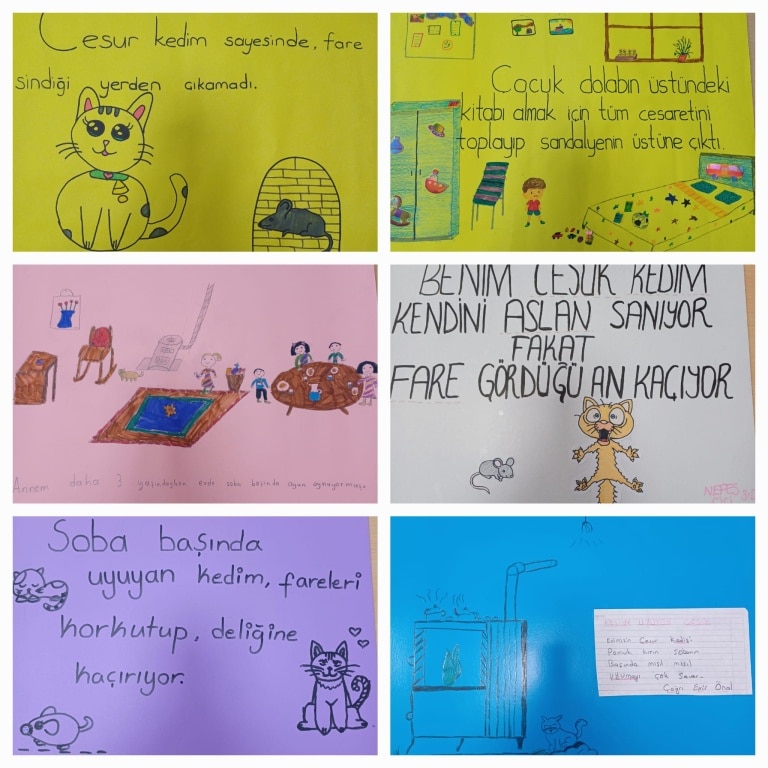 Cesur kedim sayesinde, fare
sindiği yerden çıkamadı.
Çocuk dolabın üstündeki
kitabı almak için tüm cesaretini
toplayıp sandalyenin üstüne çıktı.
Annem daha 3 yaşındayken evde soba başında oyun oynuyormuş.
BENİM CESUR KEDİM
KENDİNİ ASLAN SANIYOR
FAKAT
FARE GÖRDÜĞÜ AN KAÇIYOR
NEFES
Soba başında
uyuyan kedim, fareleri
korkutup, deliğine
kaçırıyor.
Cesur kedisi
Pamuk kışın sobanın
Başında mışıl mışıl
uyumayı çok sever.
Çağrı Önal